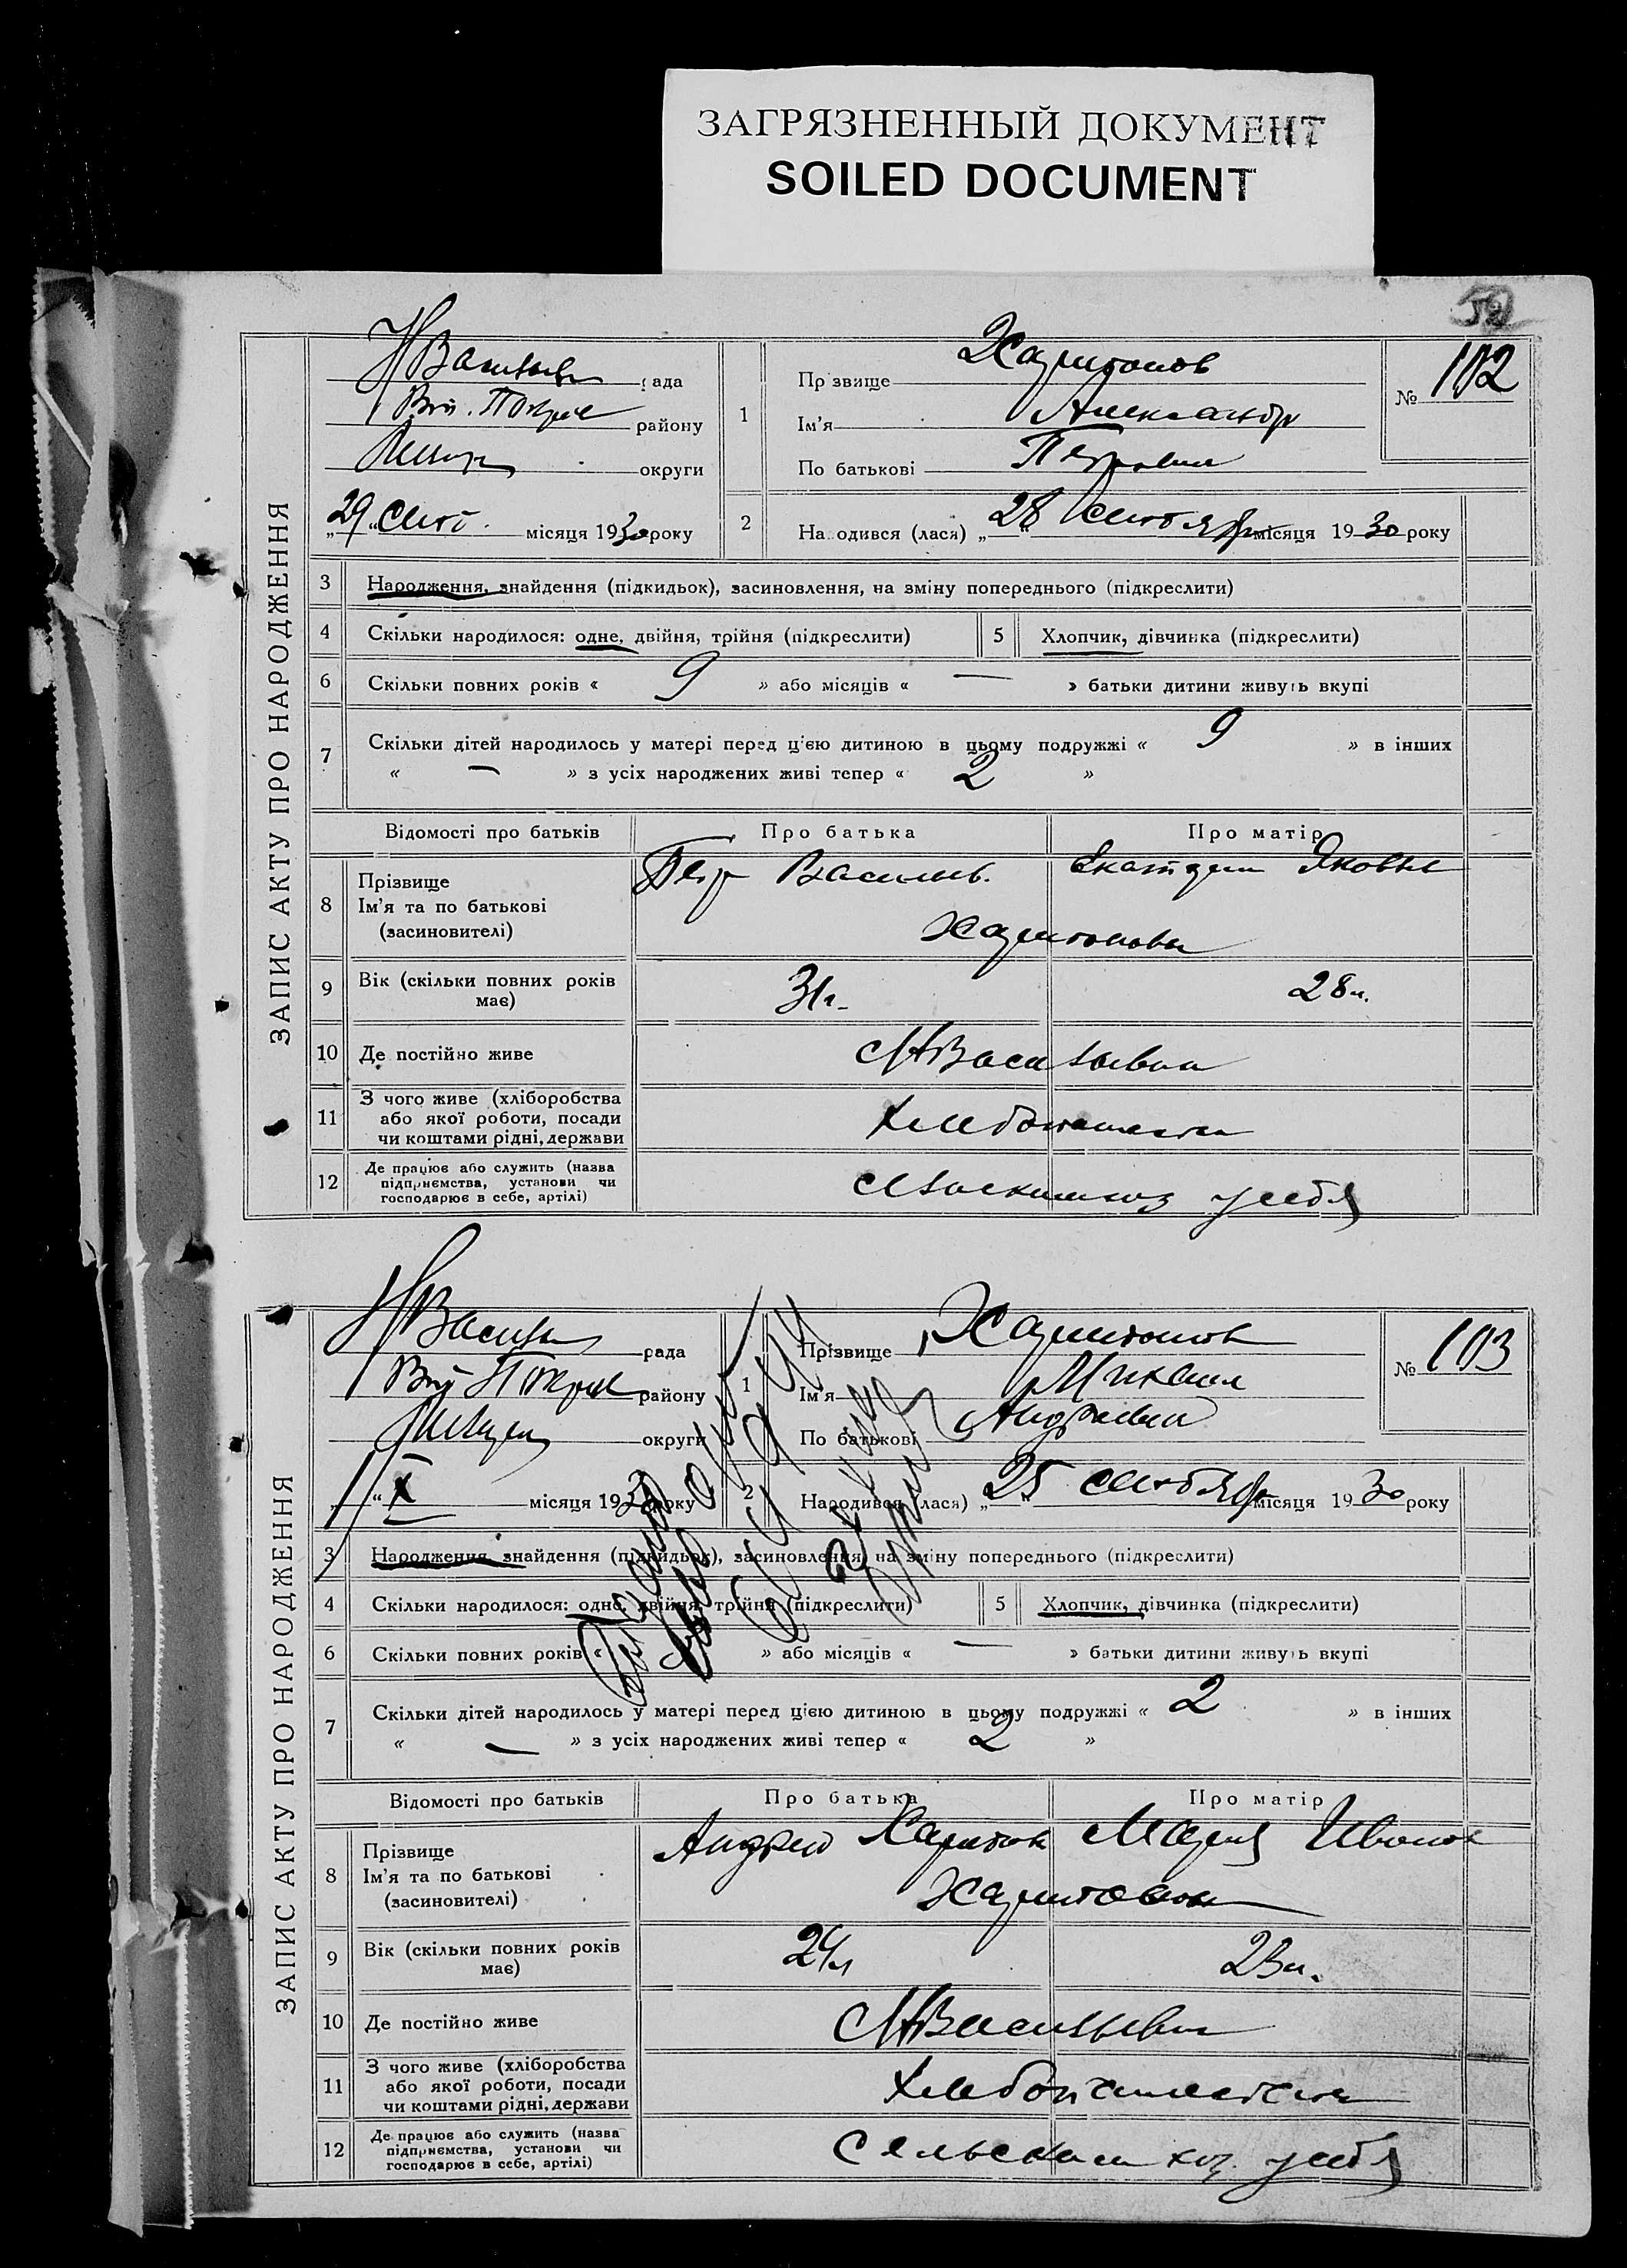 ЗАГРЯЗНЕННЫЙ ДОКУМЕНТ
SOILED DOCUMENT
ЗАПИС АКТУ ПРО НАРОДЖЕННЯ
рада
району
округи
29 „ Сент. місяця 1930 року
1
Прізвище Харитонов
Ім'я Александр
По батькові
№ 102
2
Народився (лася) „ 28 “ Сентября місяця 1930 року
3 Народження, знайдення (підкидьок), засиновлення, на зміну попереднього (підкреслити)
4 Скільки народилося: одне, двійня, трійня (підкреслити)
5 Хлопчик, дівчинка (підкреслити)
6 Скільки повних років « 9 » або місяців « — » батьки дитини живуть вкупі
7 Скільки дітей народилось у матері перед цією дитиною в цьому подружжі « 9 » в інших
« — » з усіх народжених живі тепер « 2 »
Відомості про батьків Про батька Про матір
8 Прізвище
Ім'я та по батькові
(засиновителі)
Петр Василь. Екатерин Яковл
Харитоновы
9 Вік (скільки повних років має) 31 г. 28 л.
10 Де постійно живе
11 З чого живе (хліборобства
або якої роботи, посади
чи коштами рідні, держави
12 Де працює або служить (назва
підприємства, установи чи
господарює в себе, артілі)
у себя
ЗАПИС АКТУ ПРО НАРОДЖЕННЯ
рада
району
округи
„ 1 “ X місяця 1930 року
1
Прізвище Харитонов
Ім'я Михаил
По батькові Андреевич
№ 103
2
Народився (лася) „ 25 “ Сентября місяця 1930 року
3 Народження, знайдення (підкидьок), засиновлення, на зміну попереднього (підкреслити)
4 Скільки народилося: одне, двійня, трійня (підкреслити)
5 Хлопчик, дівчинка (підкреслити)
6 Скільки повних років « » або місяців « — » батьки дитини живуть вкупі
7 Скільки дітей народилось у матері перед цією дитиною в цьому подружжі « 2 » в інших
« — » з усіх народжених живі тепер « 2 »
Відомості про батьків Про батька Про матір
8 Прізвище
Ім'я та по батькові
(засиновителі)
Андрей Харитон Мария Иванов
Харитоновы
9 Вік (скільки повних років має) 24 л 23 л.
10 Де постійно живе
11 З чого живе (хліборобства
або якої роботи, посади
чи коштами рідні, держави
12 Де працює або служить (назва
підприємства, установи чи
господарює в себе, артілі)
Сельским хоз. у себя